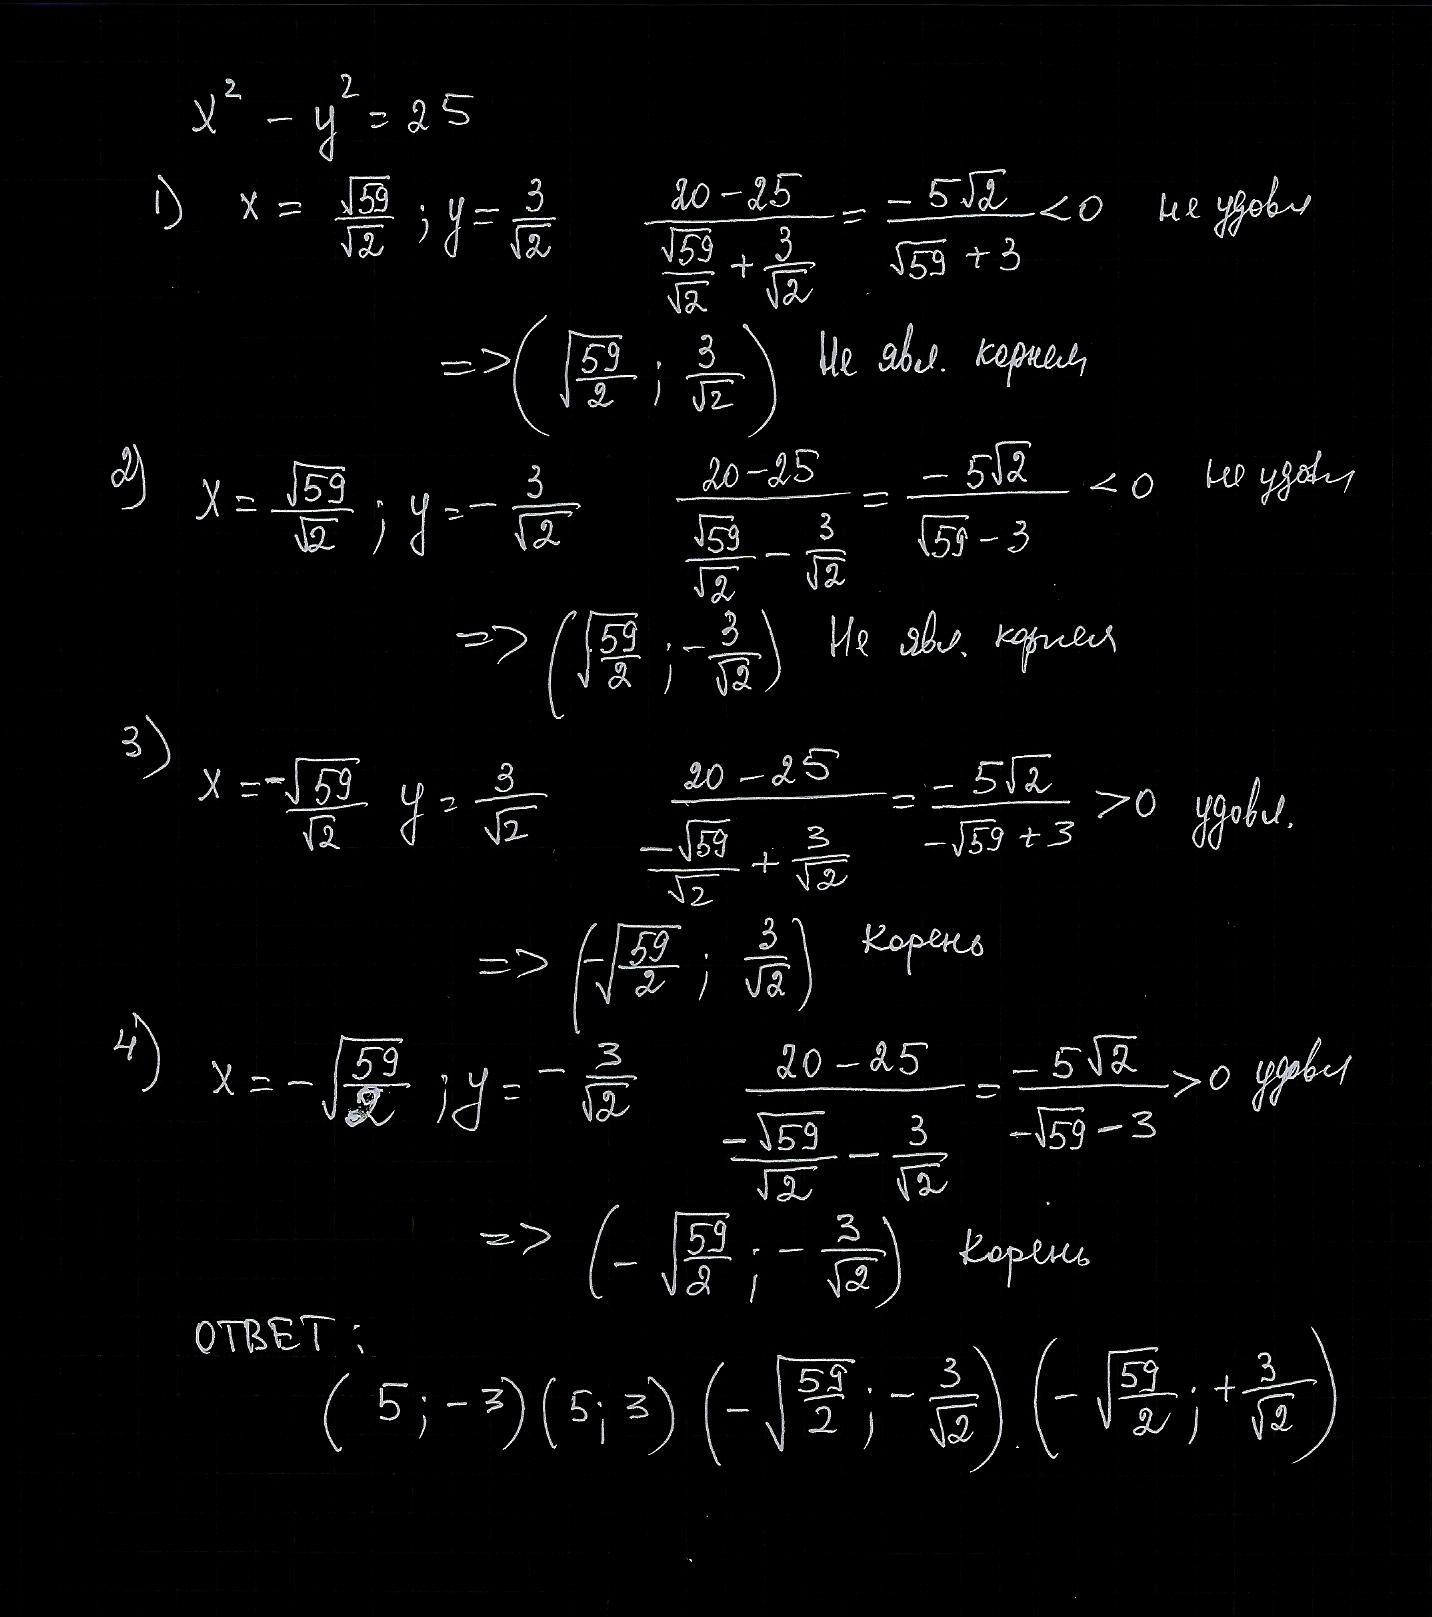 x² - y² = 25
1) x = √59/√2 ; y = 3/√2 (20-25)/(√59/√2 + 3/√2) = -5√2/(√59 + 3) < 0 не удовл
=> (√(59/2) ; 3/√2) Не явл. корнем
2) x = √59/√2 ; y = -3/√2 (20-25)/(√59/√2 - 3/√2) = -5√2/(√59 - 3) < 0 не удовл
=> (√(59/2) ; -3/√2) Не явл. корнем
3) x = -√59/√2 y = 3/√2 (20-25)/(-√59/√2 + 3/√2) = -5√2/(-√59 + 3) > 0 удовл.
=> (-√(59/2) ; 3/√2) Корень
4) x = -√(59/2) ; y = -3/√2 (20-25)/(-√59/√2 - 3/√2) = -5√2/(-√59 - 3) > 0 удовл
=> (-√(59/2) ; -3/√2) Корень
ОТВЕТ :
(5 ; -3) (5 ; 3) (-√(59/2) ; -3/√2) . (-√(59/2) ; +3/√2)